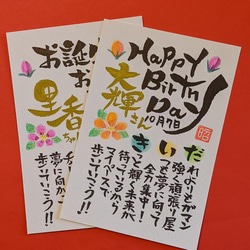 Happy
Birth
Day
10月7日
大輝さん
だれよりもガマン
強く頑張り屋
いつも夢に向って
全力集中!
きっと輝く未来が
待っているから
マイペースで
歩いていこう!!
昭
お誕
お
里香ちゃん
夢に向かって
歩いていこう!!